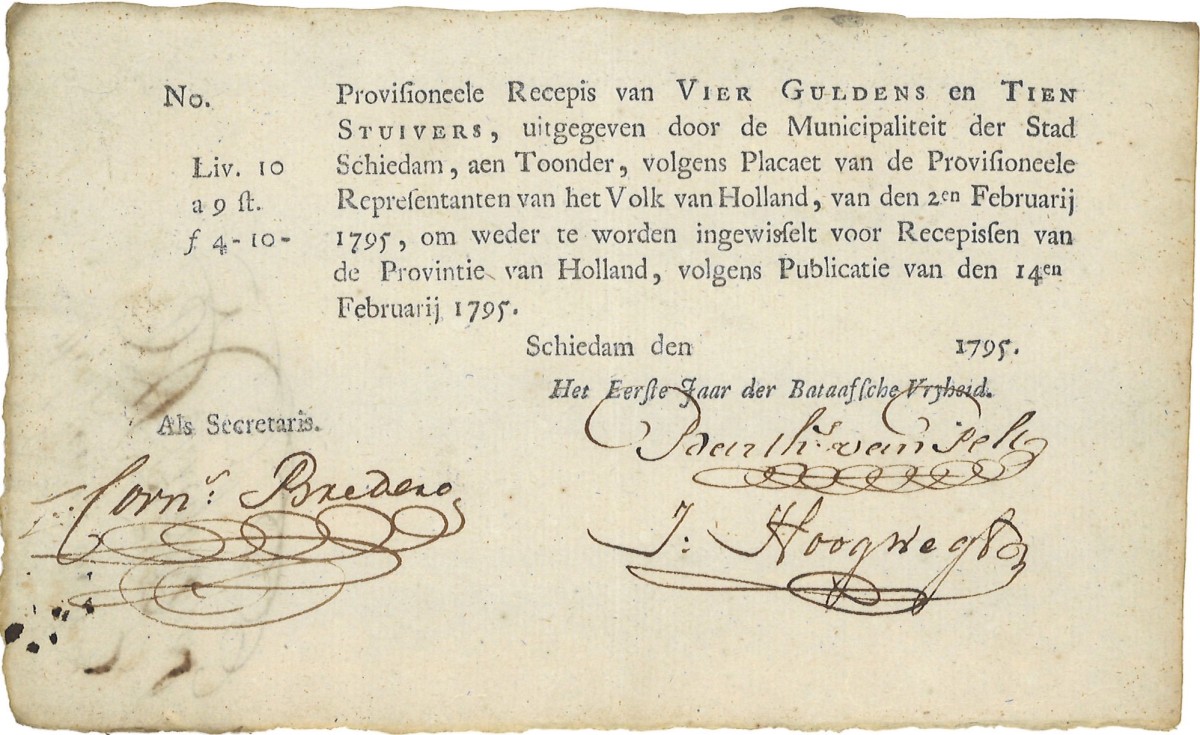 No.
Provisioneele Recepis van VIER GULDENS en TIEN
STUIVERS, uitgegeven door de Municipaliteit der Stad
Liv. 10
Schiedam, aen Toonder, volgens Placaet van de Provisioneele
a 9 st.
Representanten van het Volk van Holland, van den 2en Februarij
f 4-10-
1795, om weder te worden ingewisselt voor Recepissen van
de Provintie van Holland, volgens Publicatie van den 14en
Februarij 1795.
Schiedam den 1795.
Het Eerste Jaar der Bataafsche Vrijheid.
Als Secretaris.
Barth.s van Pelt
Corn.s Bredero
J: Hoogwegt